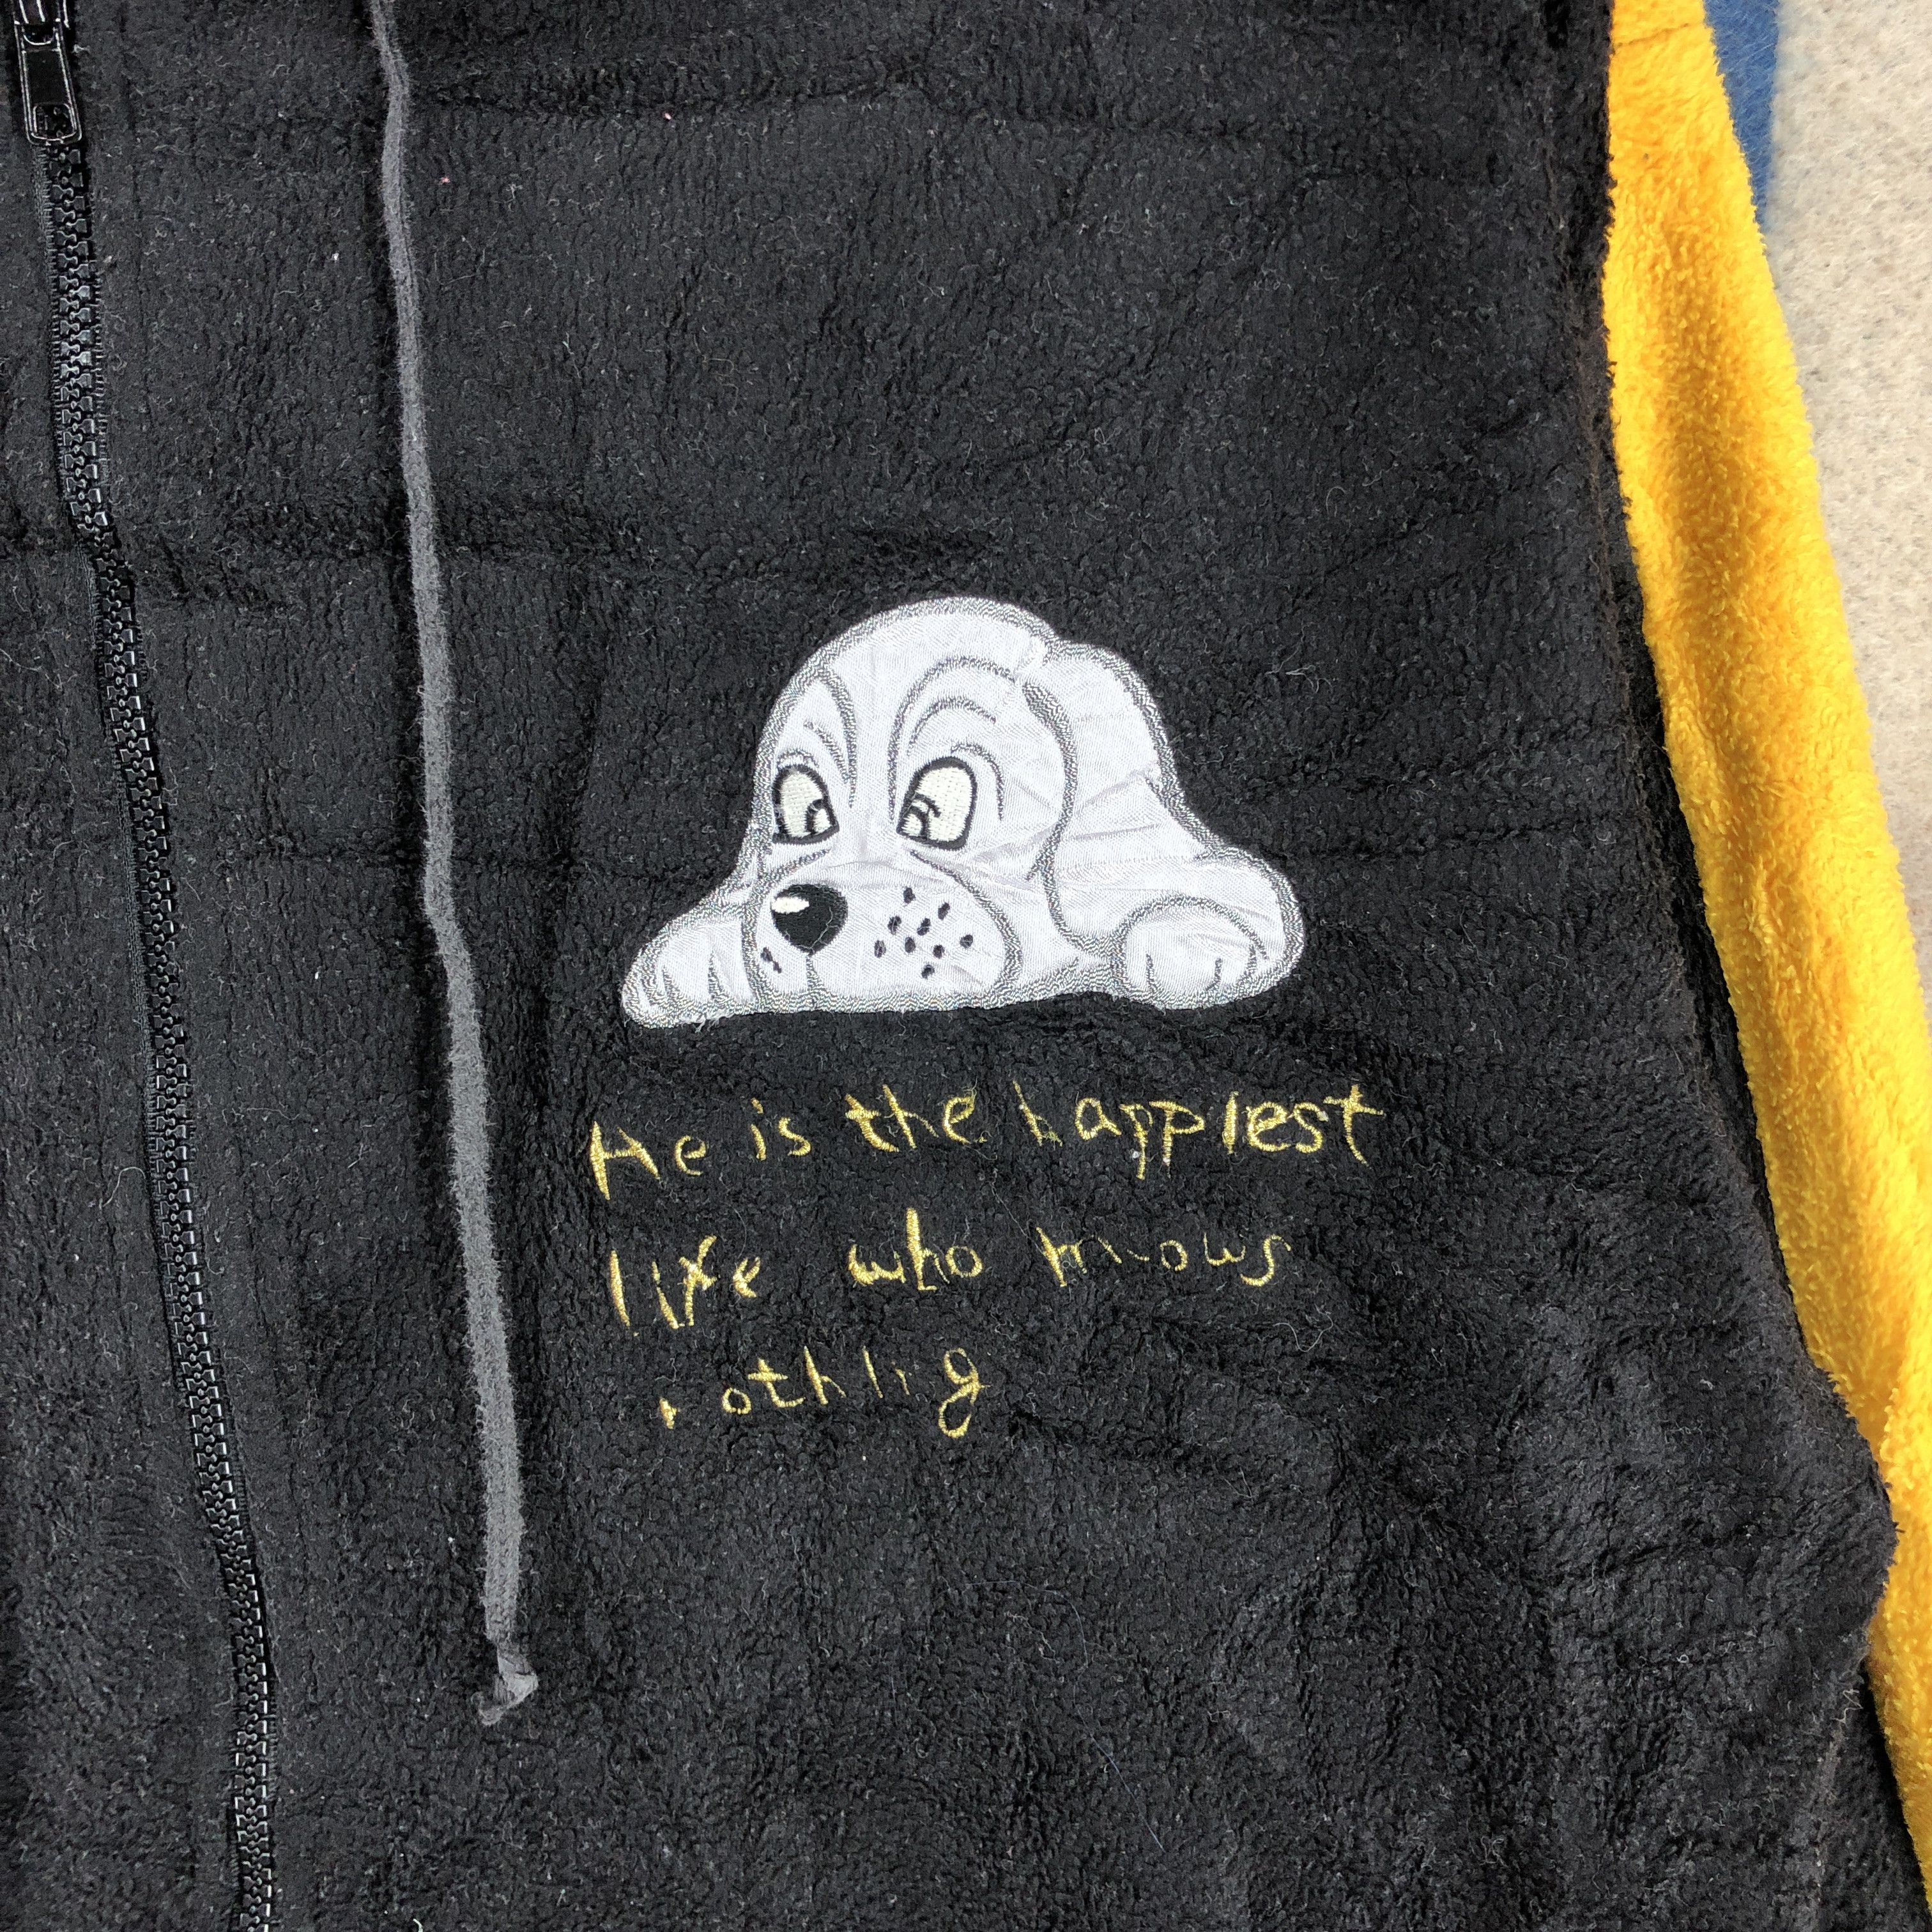 He is the happiest
like who knows
nothing